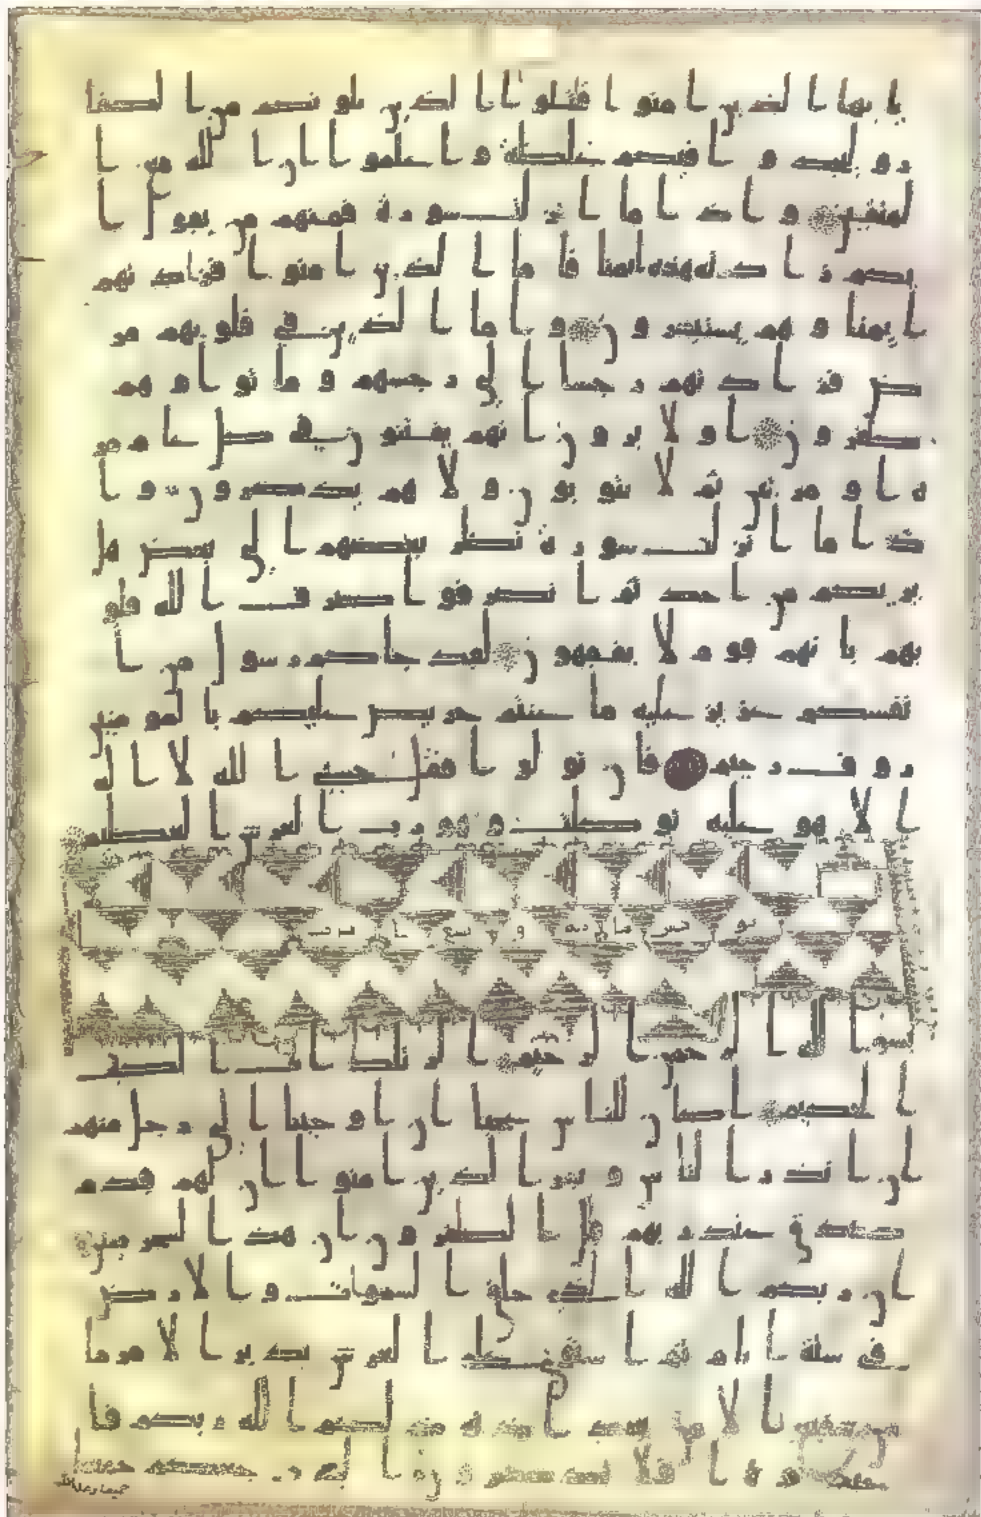 يايها الذين امنوا قتلوا الذين يلونكم من الكفا
ر وليجدوا فيكم غلظة واعلموا ان الله مع ا
لمتقين واذا ما انزلت سورة فمنهم من يقول ا
يكم زادته هذه ايمنا فاما الذين امنوا فزادتهم
ايمنا وهم يستبشرون واما الذين في قلوبهم مر
ض فزادتهم رجسا الى رجسهم وماتوا وهم
كفرون اولا يرون انهم يفتنون في كل عام مر
ة او مرتين ثم لا يتوبون ولا هم يذكرون وا
ذا ما انزلت سورة نظر بعضهم الى بعض هل
يريكم من احد ثم انصرفوا صرف الله قلو
بهم بانهم قوم لا يفقهون لقد جاكم رسول من ا
نفسكم عزيز عليه ما عنتم حريص عليكم بالمومنين
روف رحيم فان تولوا فقل حسبي الله لا اله
الا هو عليه توكلت وهو رب العرش العظيم
يونس ماية وتسع ايت
بسم الله الرحمن الرحيم الر تلك ايت الكتب
الحكيم اكان للناس عجبا ان اوحينا الى رجل منهم
ان انذر الناس وبشر الذين امنوا ان لهم قدم
صدق عند ربهم قال الكفرون ان هذا لسحر مبين
ان ربكم الله الذي خلق السموات والارض
في ستة ايام ثم استوى على العرش يدبر الامر ما
من شفيع الا من بعد اذنه ذلكم الله ربكم فا
عبدوه افلا تذكرون اليه مرجعكم جميعا
جميعا وعد الله